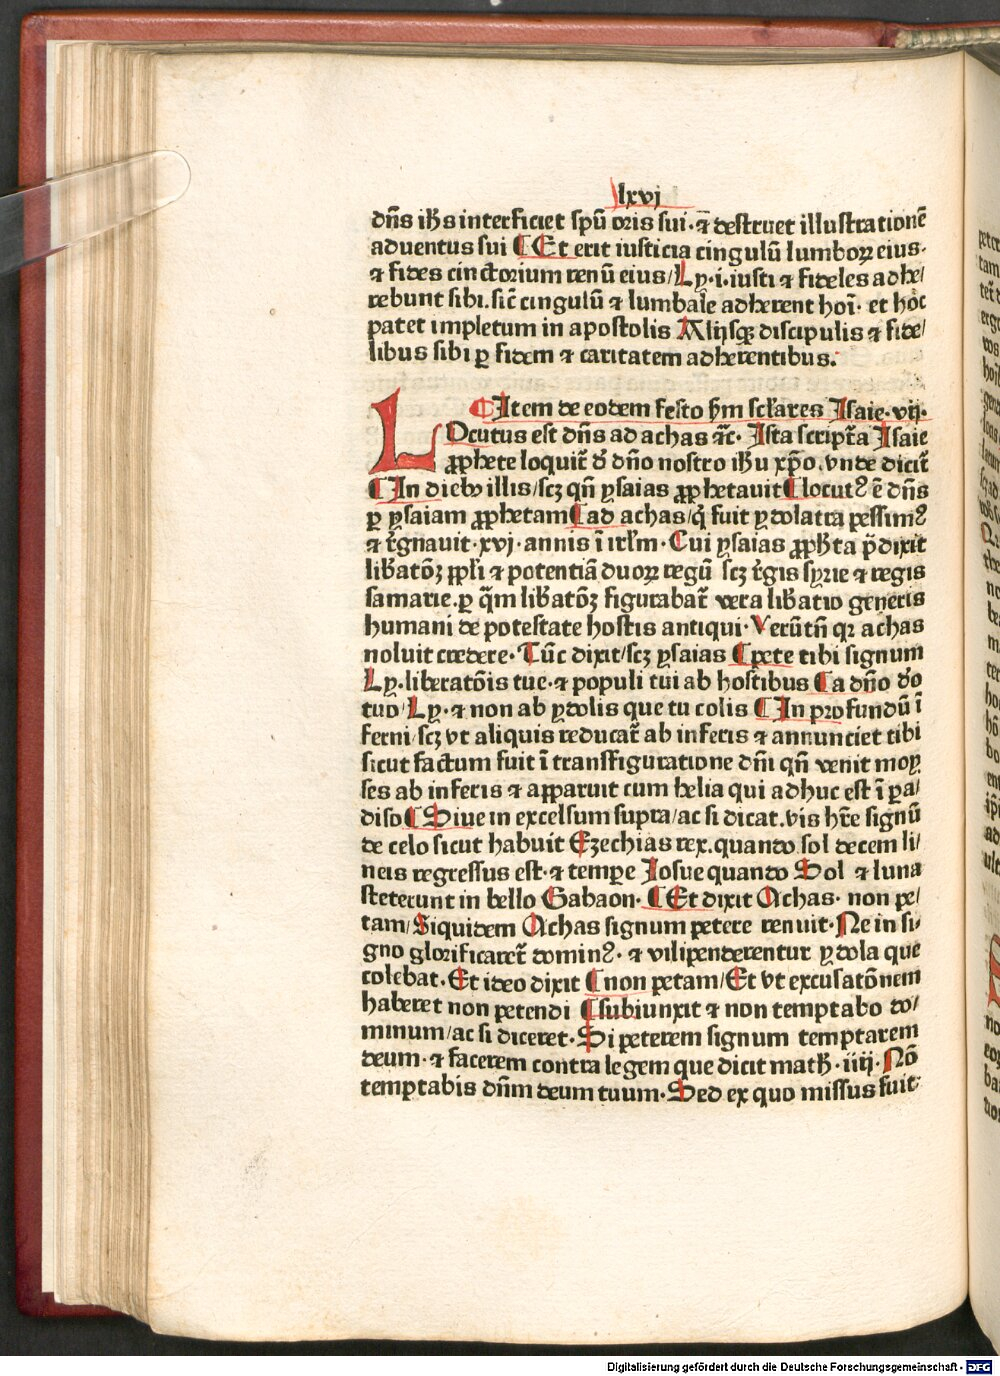 lxvj
dn̄s ih̄s interficiet spū oris sui· ⁊ destruet illustrationē
aduentus sui ¶ Et erit iusticia cingulū lumboꝝ eius·
⁊ fides cinctorium renū eius/ Ly·i·iusti ⁊ fideles adhe/
rebunt sibi. sic̄ cingulū ⁊ lumbale adherent hoī· et hoc
patet impletum in apostolis Alijsqꝫ discipulis ⁊ fide/
libus sibi ꝑ fidem ⁊ caritatem adherentibus.
¶ Item de eodem festo ẜm scl̄ares Isaie·vij·
LOcutus est dn̄s ad achas ⁊c̄· Ista script̄a Isaie
ꝓphete loquit̄ d̄ dn̄o nostro ih̄u xp̄o. vnde dicit̄
¶ In dieb9 illis/ scꝫ qn̄ ysaias ꝓphetauit ¶ locut9 ē dn̄s
ꝑ ysaiam ꝓphetam ¶ ad achas/ q̇ fuit ydolatra pessim9
⁊ r̄gnauit·xvj·annis ī irl̄m· Cui ysaias ꝓph̄ta p̄dixit
lib̄atōꝫ ppl̄i ⁊ potentiā duoꝝ regū scꝫ r̄gis syrie ⁊ regis
samarie. ꝑ q̄m lib̄atōꝫ figurabat̄ vera lib̄atio generis
humani de potestate hostis antiqui· Verūtn̄ qꝛ achas
noluit credere· Tūc dixit/ scꝫ ysaias ¶ pete tibi signum
Ly·liberatōis tue·⁊ populi tui ab hostibus ¶ a dn̄o do
tuo/ Ly·⁊ non ab ydolis que tu colis ¶ In profundū ī
ferni/ scꝫ vt aliquis reducat̄ ab inferis ⁊ annunciet tibi
sicut factum fuit ī transfiguratione dn̄i qn̄ venit moy
ses ab inferis ⁊ apparuit cum helia qui adhuc est ī pa/
diso ¶ Siue in excelsum supra/ ac si dicat. vis hr̄e signū
de celo sicut habuit Ezechias rex. quando sol decem li/
neis regressus est·⁊ tempe Iosue quando Sol ⁊ luna
steterunt in bello Gabaon· ¶ Et dixit Achas· non pe/
tam/ Siquidem Achas signum petere renuit· Ne in si/
gno glorificaret̄ domin9·⁊ vilipenderentur ydola que
colebat· Et ideo dixit ¶ non petam/ Et vt excusatōnem
haberet non petendi ¶ subiunxit ⁊ non temptabo do/
minum/ ac si diceret· Si peterem signum temptarem
deum·⁊ facerem contra legem que dicit math̄·iiij· Nō
temptabis dn̄m deum tuum· Sed ex quo missus fuit
Digitalisierung gefördert durch die Deutsche Forschungsgemeinschaft - DFG